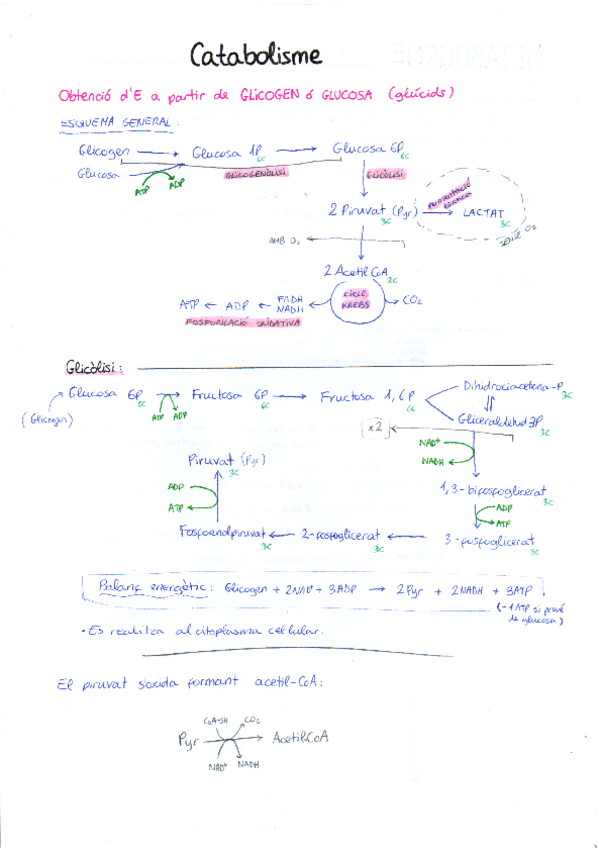 Catabolisme
Obtenció d'E a partir de GLICOGEN ó GLUCOSA (glúcids)
ESQUEMA GENERAL:
Glicogen → Glucosa 1P 6C → Glucosa 6P 6C
Glucosa
ATP ADP
GLICOGENÒLISI
GLICÒLISI
2 Piruvat (Pyr) 3C → LACTAT 3C
AMB O2
SENSE O2
2 Acetil CoA 2C
CICLE KREBS
CO2
ATP ← ADP ← FADH NADH
FOSFORILACIÓ OXIDATIVA
Glicòlisi:
Glucosa 6P 6C → Fructosa 6P 6C → Fructosa 1,6P 6C
Dihidroxiacetona-P 3C
(Glicogen)
ATP ADP
Gliceraldehid 3P 3C
x2
NAD+
NADH
Piruvat (Pyr) 3C
1,3-bifosfoglicerat 3C
ADP
ATP
ADP
ATP
Fosfoenolpiruvat 3C ← 2-fosfoglicerat 3C ← 3-fosfoglicerat 3C
Balanç energètic: Glicogen + 2NAD+ + 3ADP → 2Pyr + 2NADH + 3ATP
(-1ATP si prové de glucosa)
• Es realitza al citoplasma cel·lular.
El piruvat s'oxida formant acetil-CoA:
CoA-SH CO2
Pyr → Acetil-CoA
NAD+ NADH